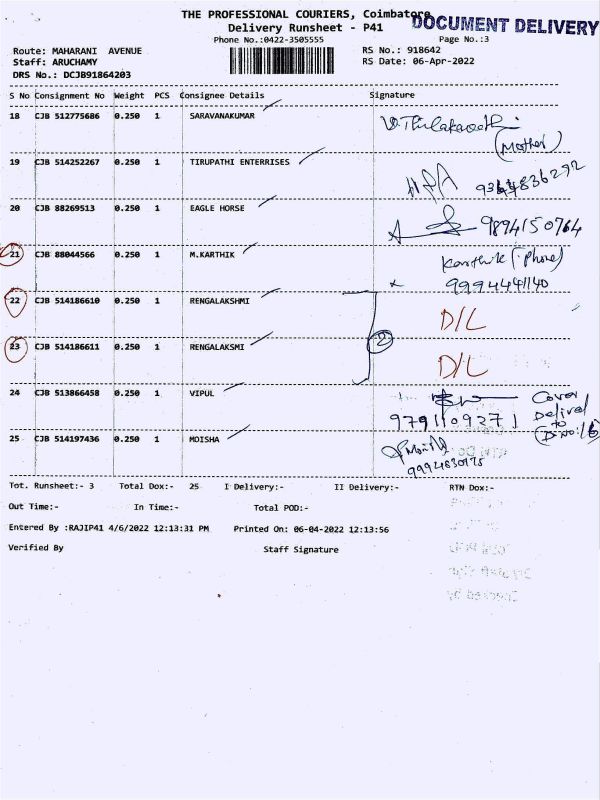 THE PROFESSIONAL COURIERS, Coimbatore
DOCUMENT DELIVERY
Delivery Runsheet - P41
Phone No.:0422-3505555
Page No.:3
Route: MAHARANI AVENUE
RS No.: 918642
Staff: ARUCHAMY
RS Date: 06-Apr-2022
DRS No.: DCJB91864203
S No Consignment No Weight PCS Consignee Details Signature
18 CJB 512775686 0.250 1 SARAVANAKUMAR
(Mother)
19 CJB 514252267 0.250 1 TIRUPATHI ENTERRISES
9364836292
20 CJB 88269513 0.250 1 EAGLE HORSE
9894150764
21 CJB 88044566 0.250 1 M.KARTHIK Karthik (Phone)
9994441140
22 CJB 514186610 0.250 1 RENGALAKSHMI D/L
2
23 CJB 514186611 0.250 1 RENGALAKSMI D/L
24 CJB 513866458 0.250 1 VIPUL
9791109271
Cover
25 CJB 514197436 0.250 1 MOISHA
Tot. Runsheet:- 3 Total Dox:- 25 I Delivery:- II Delivery:- RTN Dox:-
Out Time:- In Time:- Total POD:-
Entered By :RAJIP41 4/6/2022 12:13:31 PM Printed On: 06-04-2022 12:13:56
Verified By Staff Signature